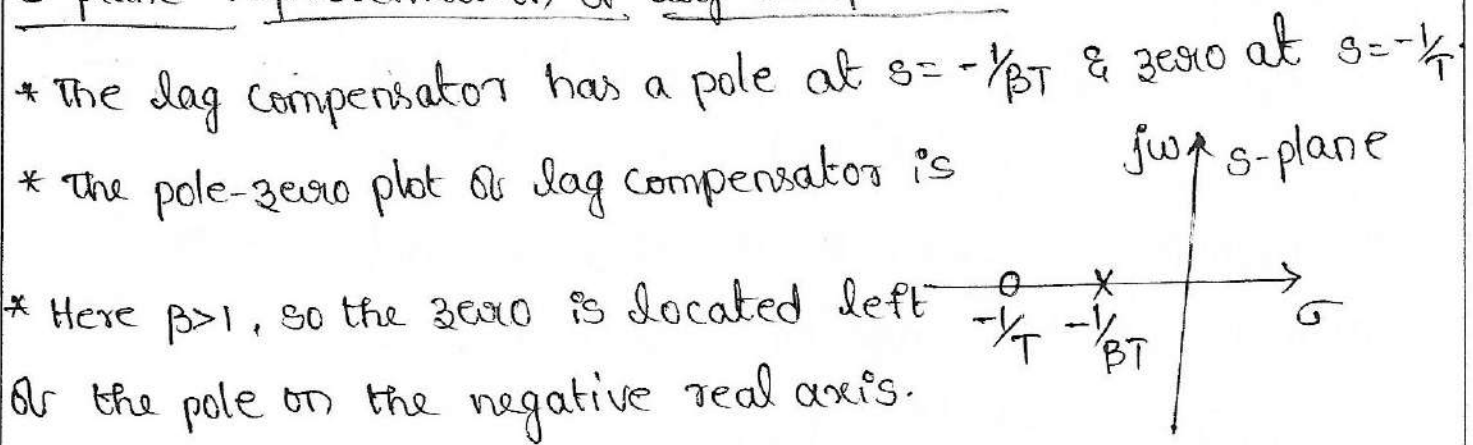 * The lag compensator has a pole at s = -1/βT & zero at s = -1/T.
* The pole-zero plot of lag compensator is
jω s-plane
* Here β>1, so the zero is located left
-1/T -1/βT σ
of the pole on the negative real axis.